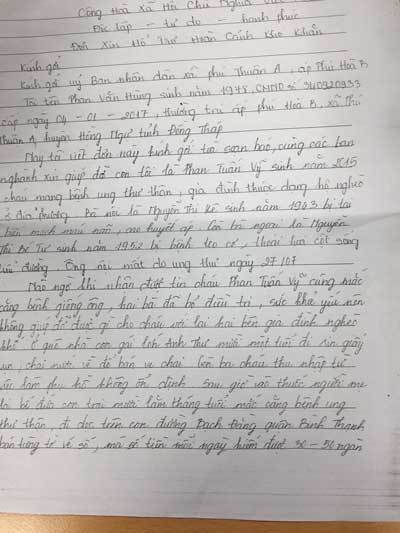 Cộng Hoà Xã Hội Chủ Nghĩa Việt
Độc lập - tự do - hạnh phúc
Đơn Xin Hỗ Trợ Hoàn Cảnh Khó Khăn
Kính gởi
Kính gởi uỷ Ban nhân dân xã phú Thuận A, ấp Phú Hoà B
Tôi tên Phan Văn Hùng sinh năm 1978, CMND số 340920933
cấp ngày 04 - 01 - 2017, thường trú ấp phú Hoà B, xã Phú
Thuận A, huyện Hồng Ngự tỉnh Đồng Tháp
Nay tôi viết đơn này kính gởi toà soạn báo, cùng các ban
nghành xin giúp đỡ con tôi là Phan Tuấn Vỹ sinh năm 2015
cháu mang bệnh ung thư thận, gia đình thuộc dạng hộ nghèo
ở địa phương. Bà nội là Nguyễn Thị Kê sinh năm 1943 bị tai
biến mạch máu não, cao huyết áp. Còn bà ngoại là Nguyễn
Thị Bé Tư sinh năm 1952 bị bệnh teo cơ, thoái hoá cột sống
tiểu đường. Ông nội mất do ung thư ngày 27/07
Nào ngờ khi nhận được tin cháu Phan Tuấn Vỹ cũng mắc
căng bệnh giống ông, hai bà đã bỏ điều trị, sức khoẻ yếu nên
không giúp đỡ được gì cho cháu với lại hai bên gia đình nghèo
khổ ở quê nhà con gái lớn Anh Thư mười một tuổi đi xin giấy
vụn, chai nước về để bán ve chai. Còn ba cháu thu nhập từ
việc làm phụ hồ không ổn định sau giờ vào thuốc người mẹ
lại bế đứa con trai mười lăm tháng tuổi mắc căng bệnh ung
thư thận, đi dọc trên con đường Bạch Đằng quận Bình Thạnh
bán từng tờ vé số, mà số tiền mỗi ngày kiếm được 30 - 50 ngàn